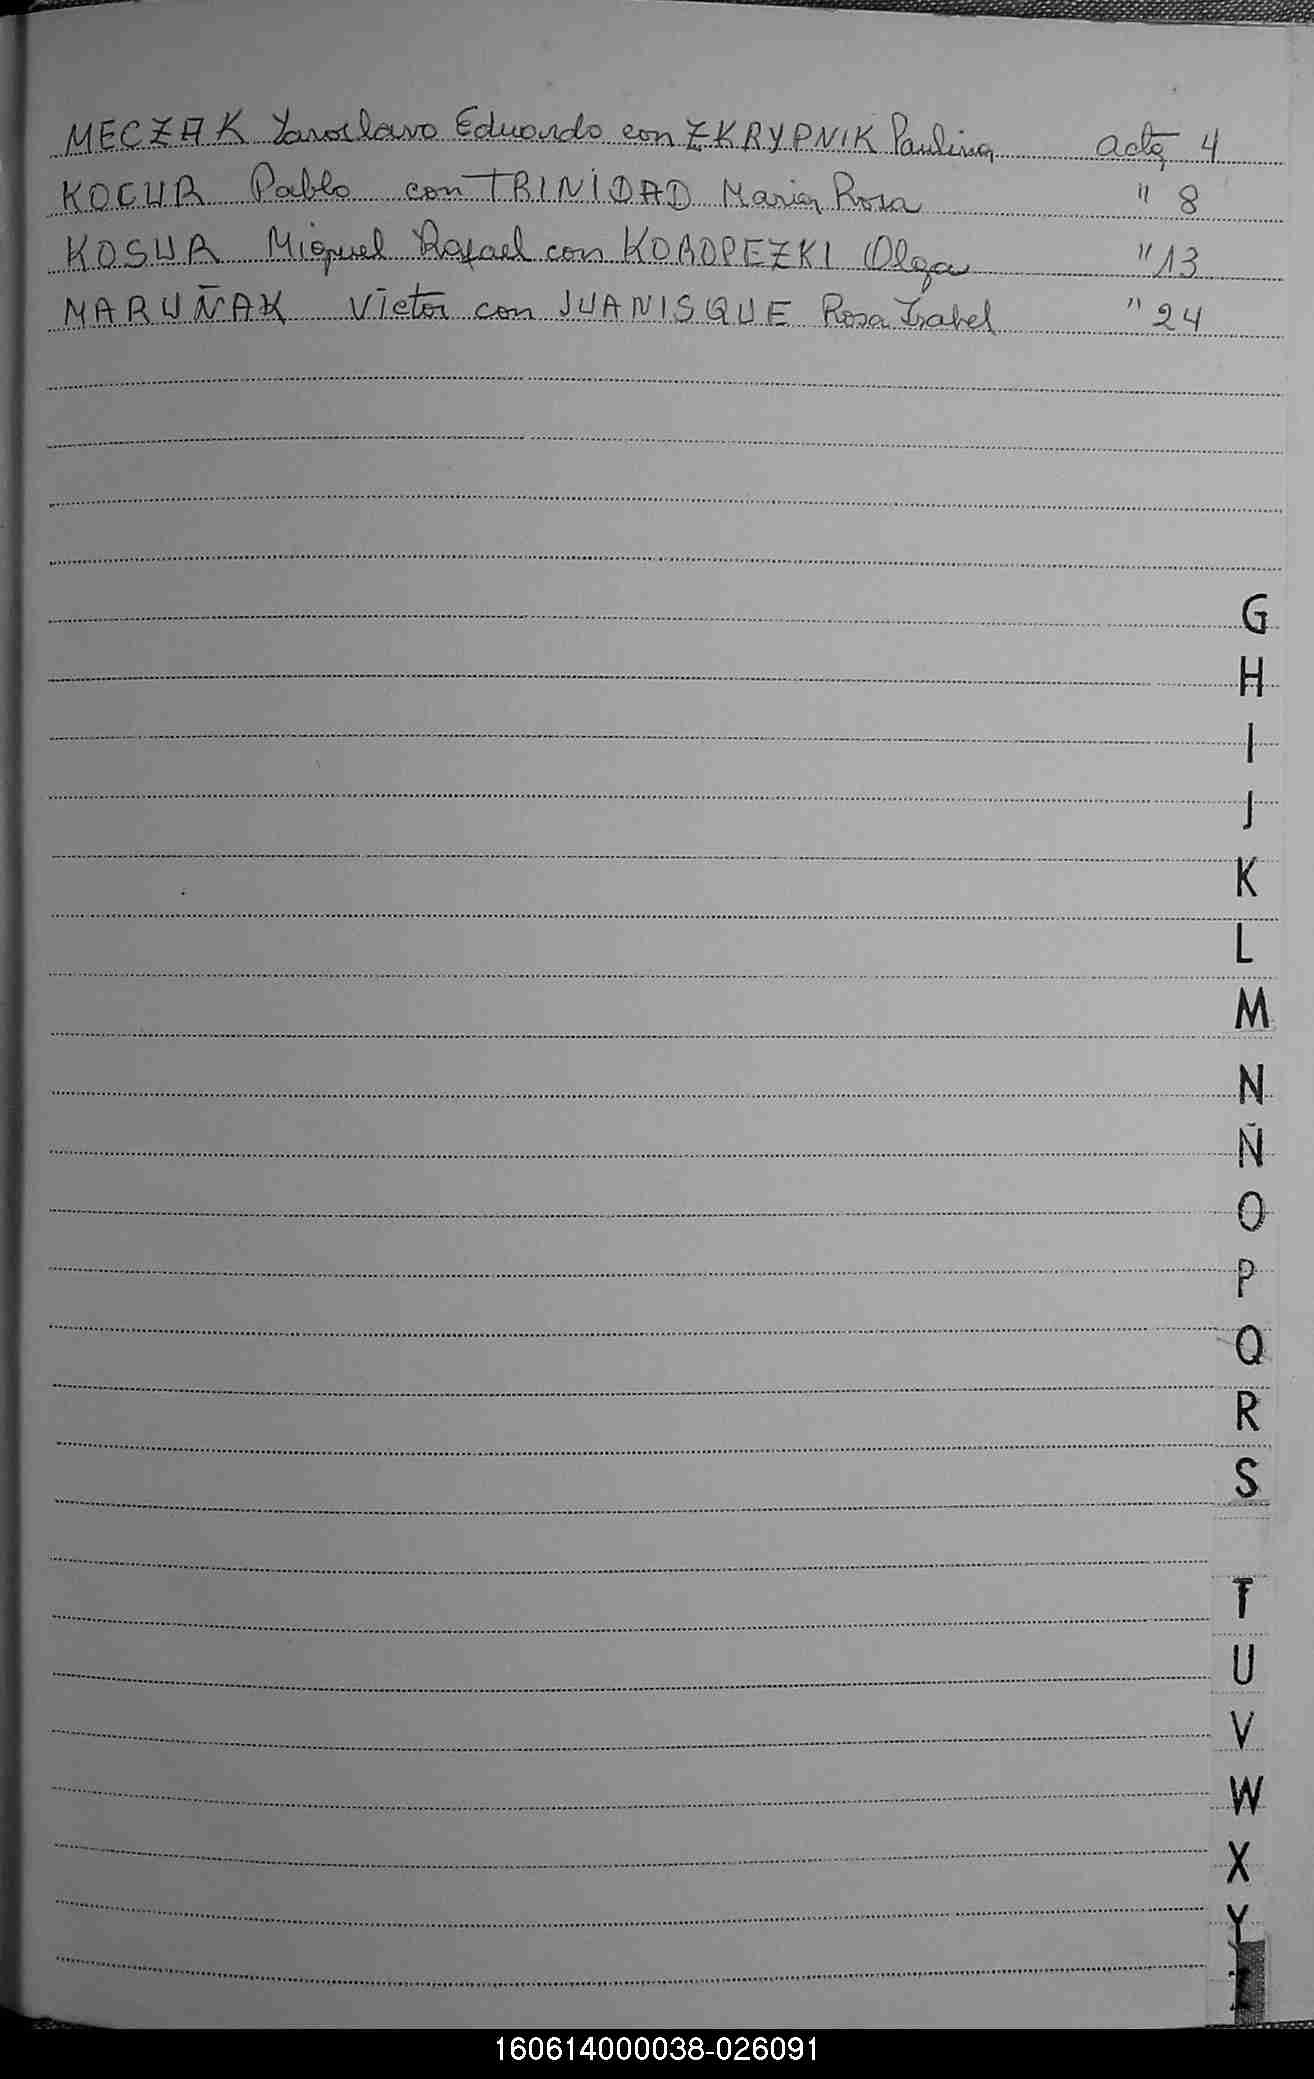 MECZAK Yaroslavo Eduardo con ZKRYPNIK Paulina acta 4
KOCUR Pablo con TRINIDAD Maria Rosa " 8
KOSUR Miguel Rafael con KOROPEZKI Olga " 13
MARUÑAK Victor con JUANISQUE Rosa Isabel " 24
G
H
I
J
K
L
M
N
Ñ
O
P
Q
R
S
T
U
V
W
X
Y
Z
160614000038-026091